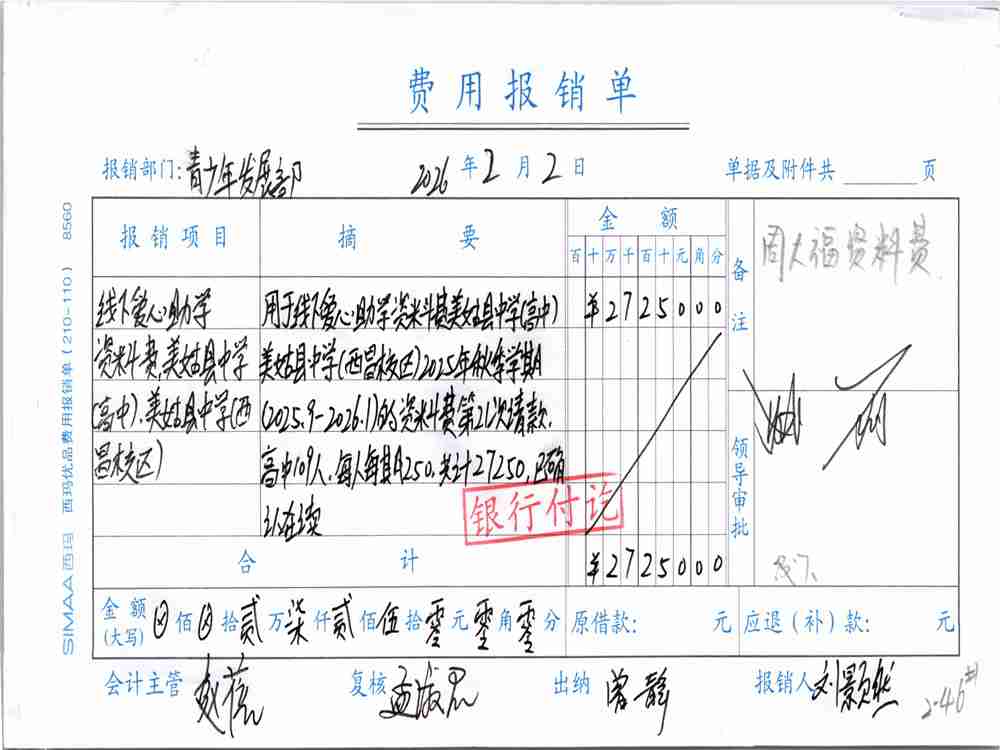 费用报销单
报销部门:青少年发展部 2026年2月2日 单据及附件共 页
报销项目 摘要 金额 备注
百十万千百十元角分
周大福资料费
线下爱心助学
资料费,美姑县中学
(高中).美姑县中学(西
昌校区)
用于线下爱心助学资料费美姑县中学(高中)
美姑县中学(西昌校区)2025年秋季学期
(2025.9-2026.1)的资料费第21次请款.
高中109人,每人每期250,共计27250,已确
认在读
¥2725000
银行付讫
领导审批
合计 ¥2725000
金额(大写) 佰 拾贰万柒仟贰佰伍拾零元零角零分 原借款: 元 应退(补)款: 元
会计主管 复核 出纳 曾静 报销人 刘景然
2-46#
SIMAA西玛 西玛优品费用报销单(210-110) 8560